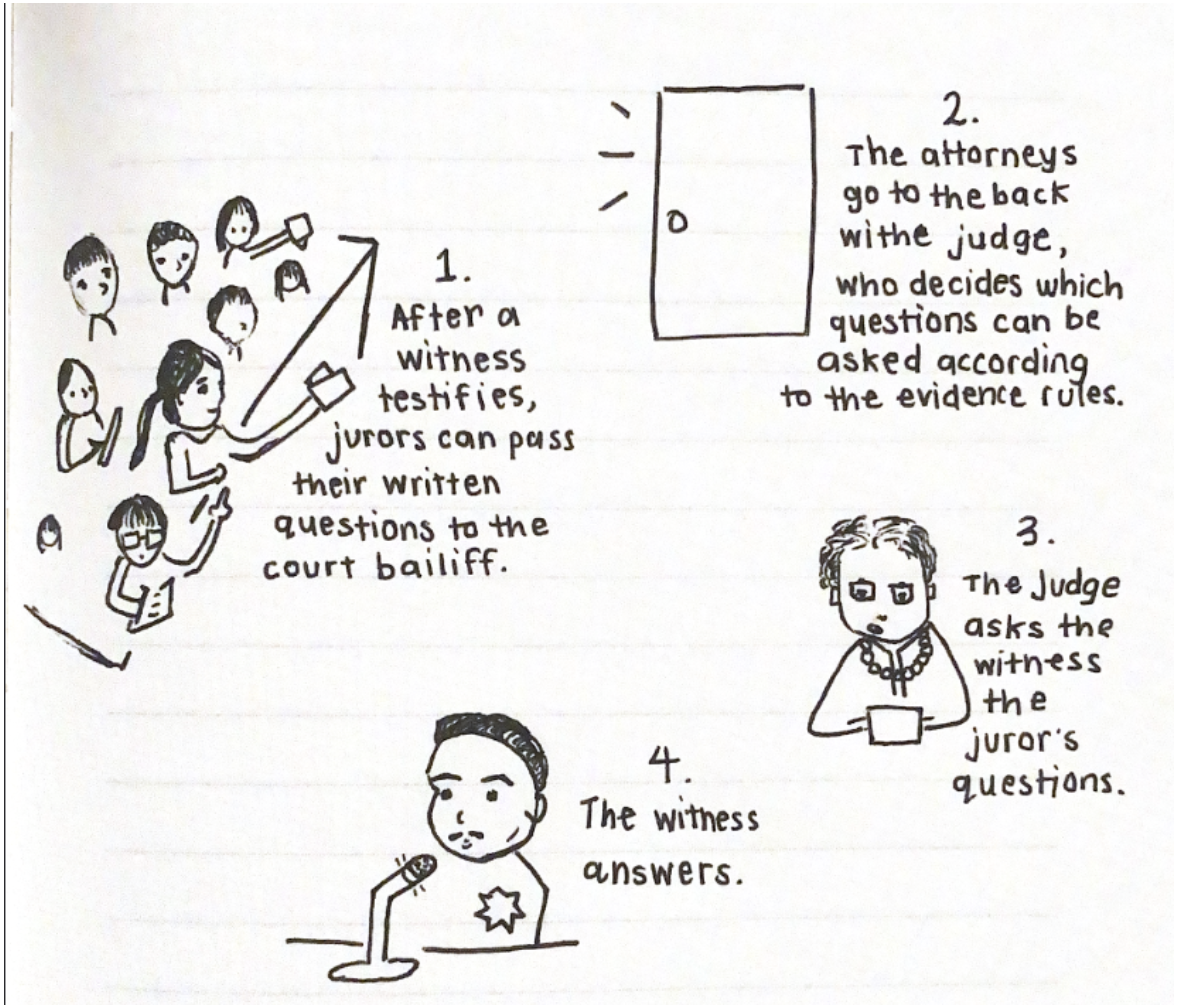 1.
After a
witness
testifies,
jurors can pass
their written
questions to the
court bailiff.
2.
The attorneys
go to the back
withe judge,
who decides which
questions can be
asked according
to the evidence rules.
3.
The Judge
asks the
witness
the
juror's
questions.
4.
The witness
answers.